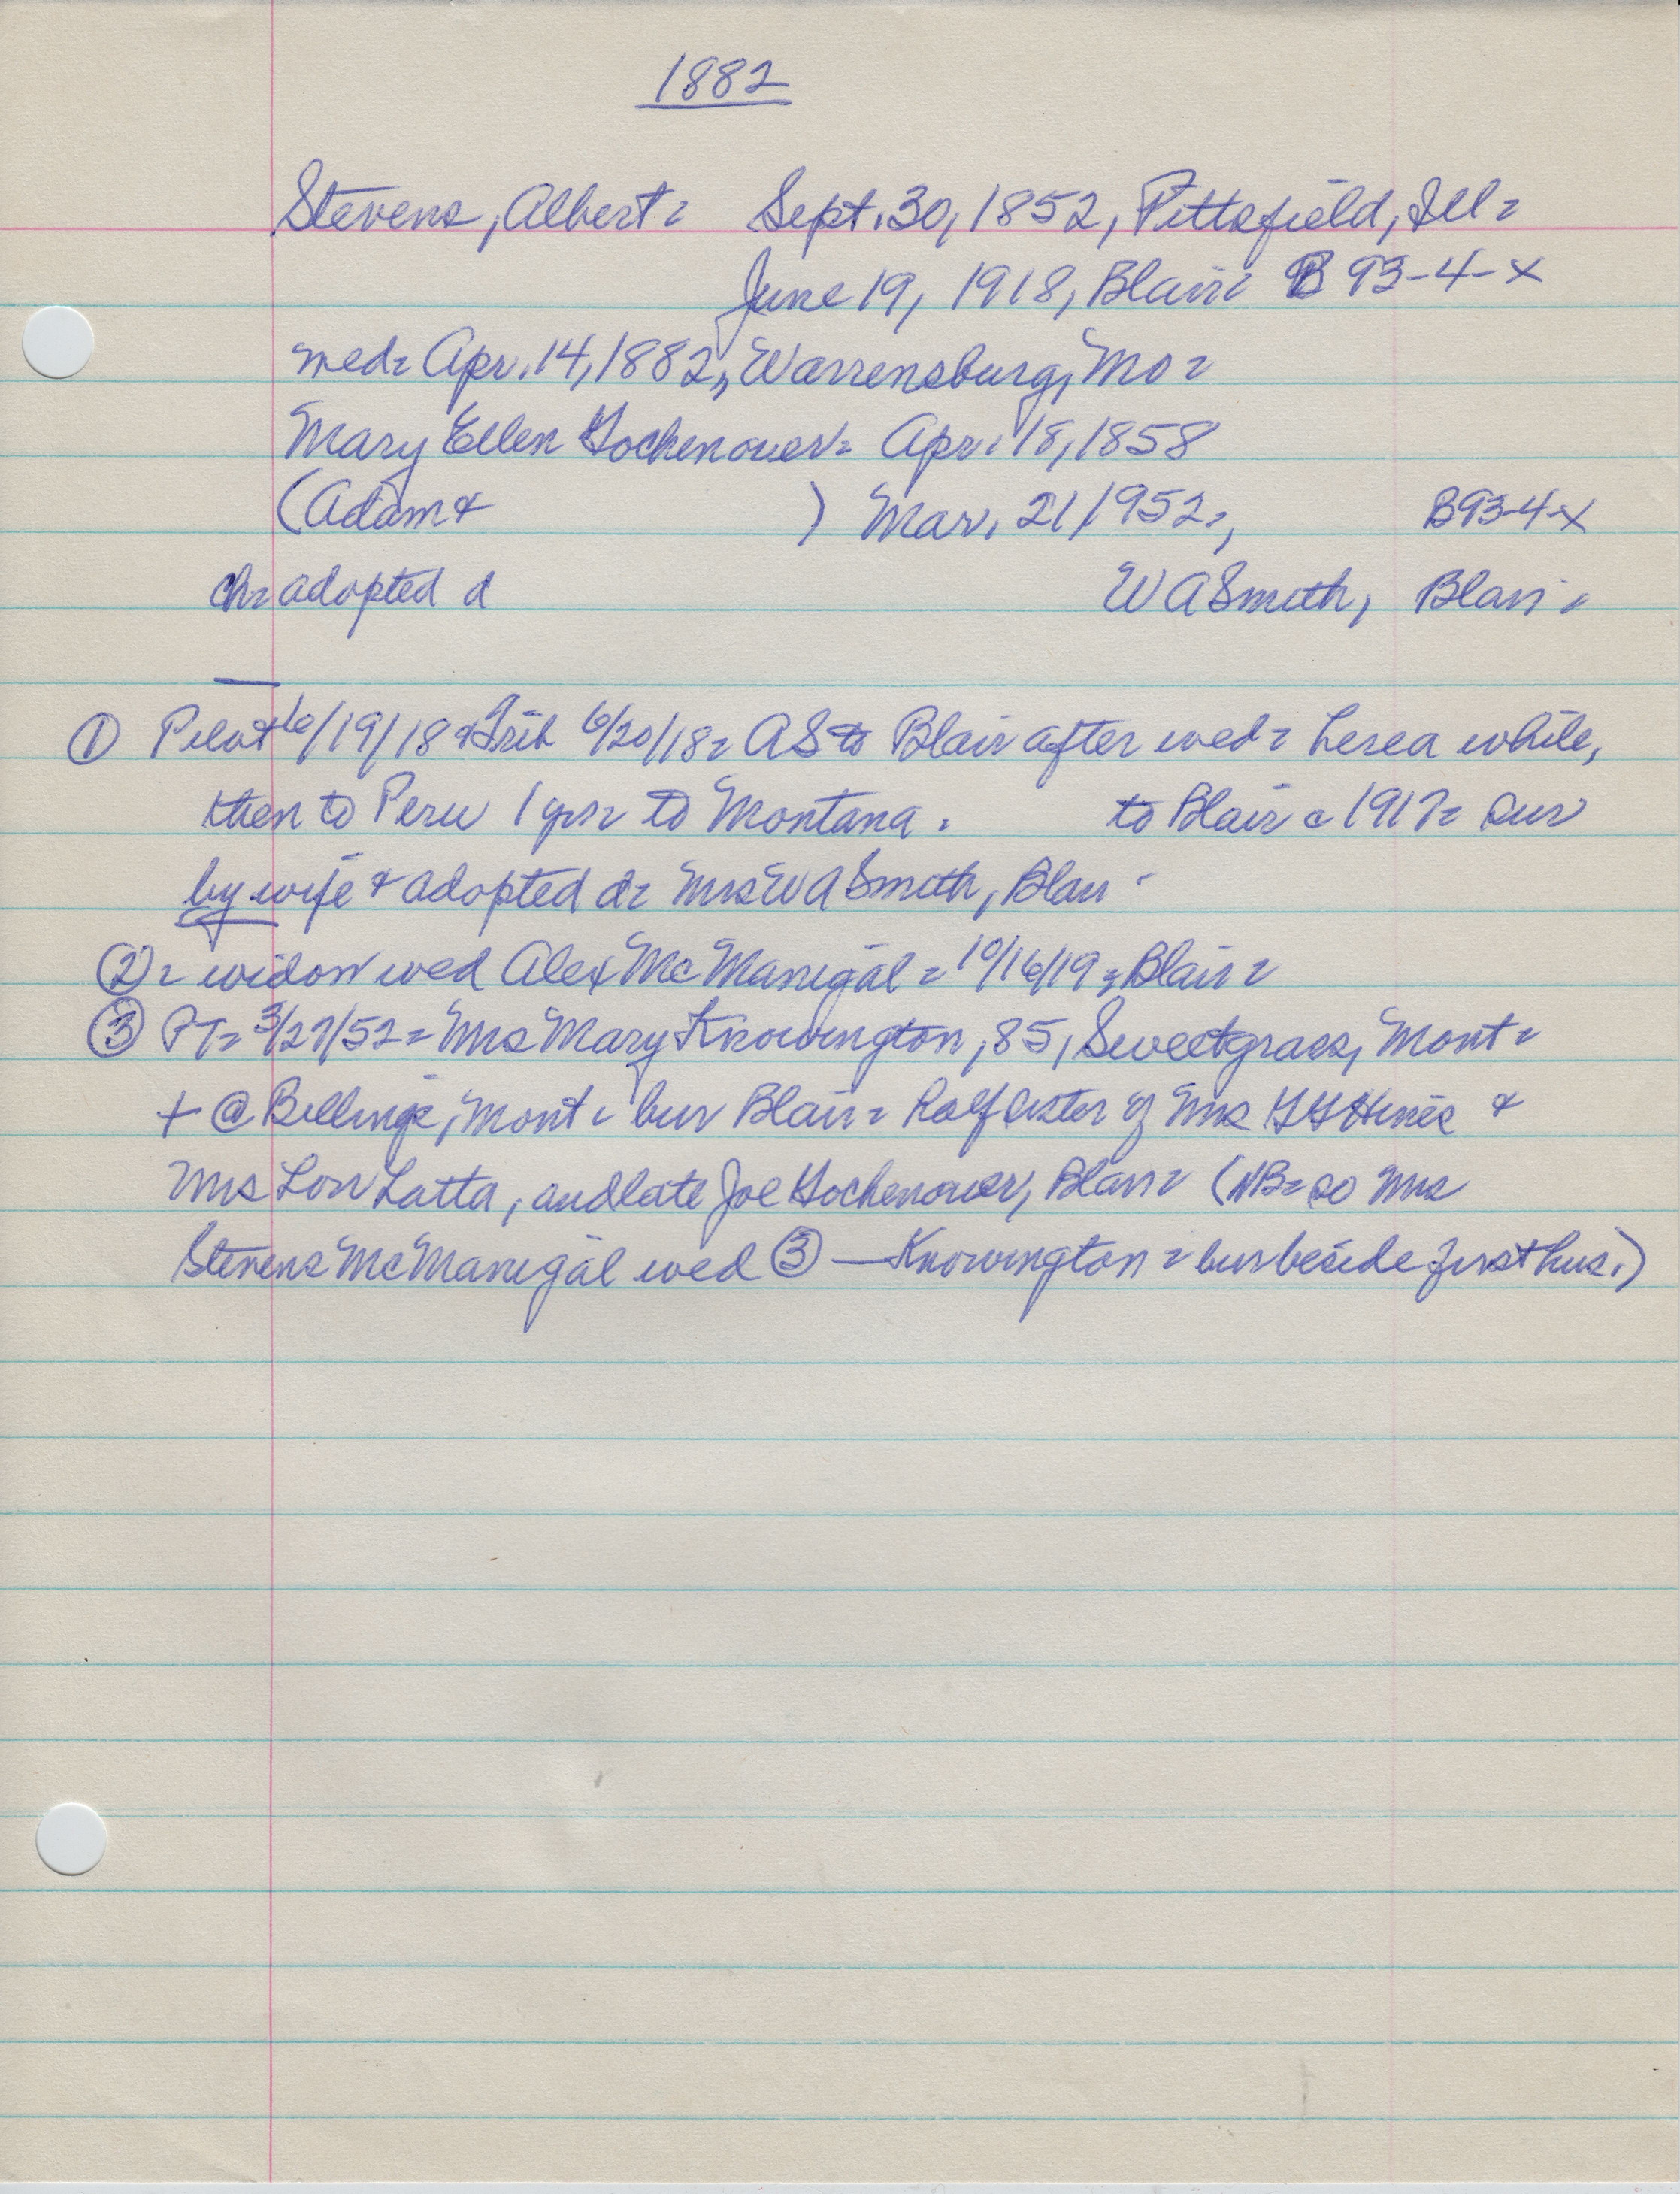 1882
Stevens, Albert = Sept. 30, 1852, Pittsfield, Ill =
June 19, 1918, Blair = B 93-4-X
wed = Apr. 14, 1882, Warrensburg, Mo =
Mary Ellen Gochenouer = Apr. 18, 1858
(Adam & ) Mar. 21, 1952 =, B93-4-X
ch = adopted d W A Smith, Blair =
① Pilot 6/19/18 & Trib 6/20/18 = AS to Blair after wed = here a while,
then to Peru 1 yr = to Montana. to Blair c 1917 = sur
by wife & adopted d = Mrs W A Smith, Blair -
② = widow wed Alex McManigal = 10/16/19 = Blair =
③ PT = 3/27/52 = Mrs Mary Knowington, 85, Sweetgrass, Mont =
+ @ Billings, Mont = bur Blair = half sister of Mrs Hines &
Mrs Lon Latta, and late Joe Gochenouer, Blair = (NB = so Mrs
Stevens McManigal wed ③ — Knowington = bur beside first hus.)